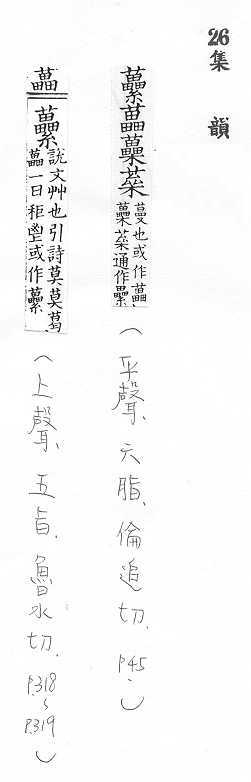 26集韻
虆藟蔂蔂蔓也或作藟
蔂通作纍
(平聲、六脂、倫追切、P45.)
藟虆說文艸也引詩莫莫葛
藟一曰秬鬯或作虆
(上聲、五旨、魯水切、P.318~P.319)